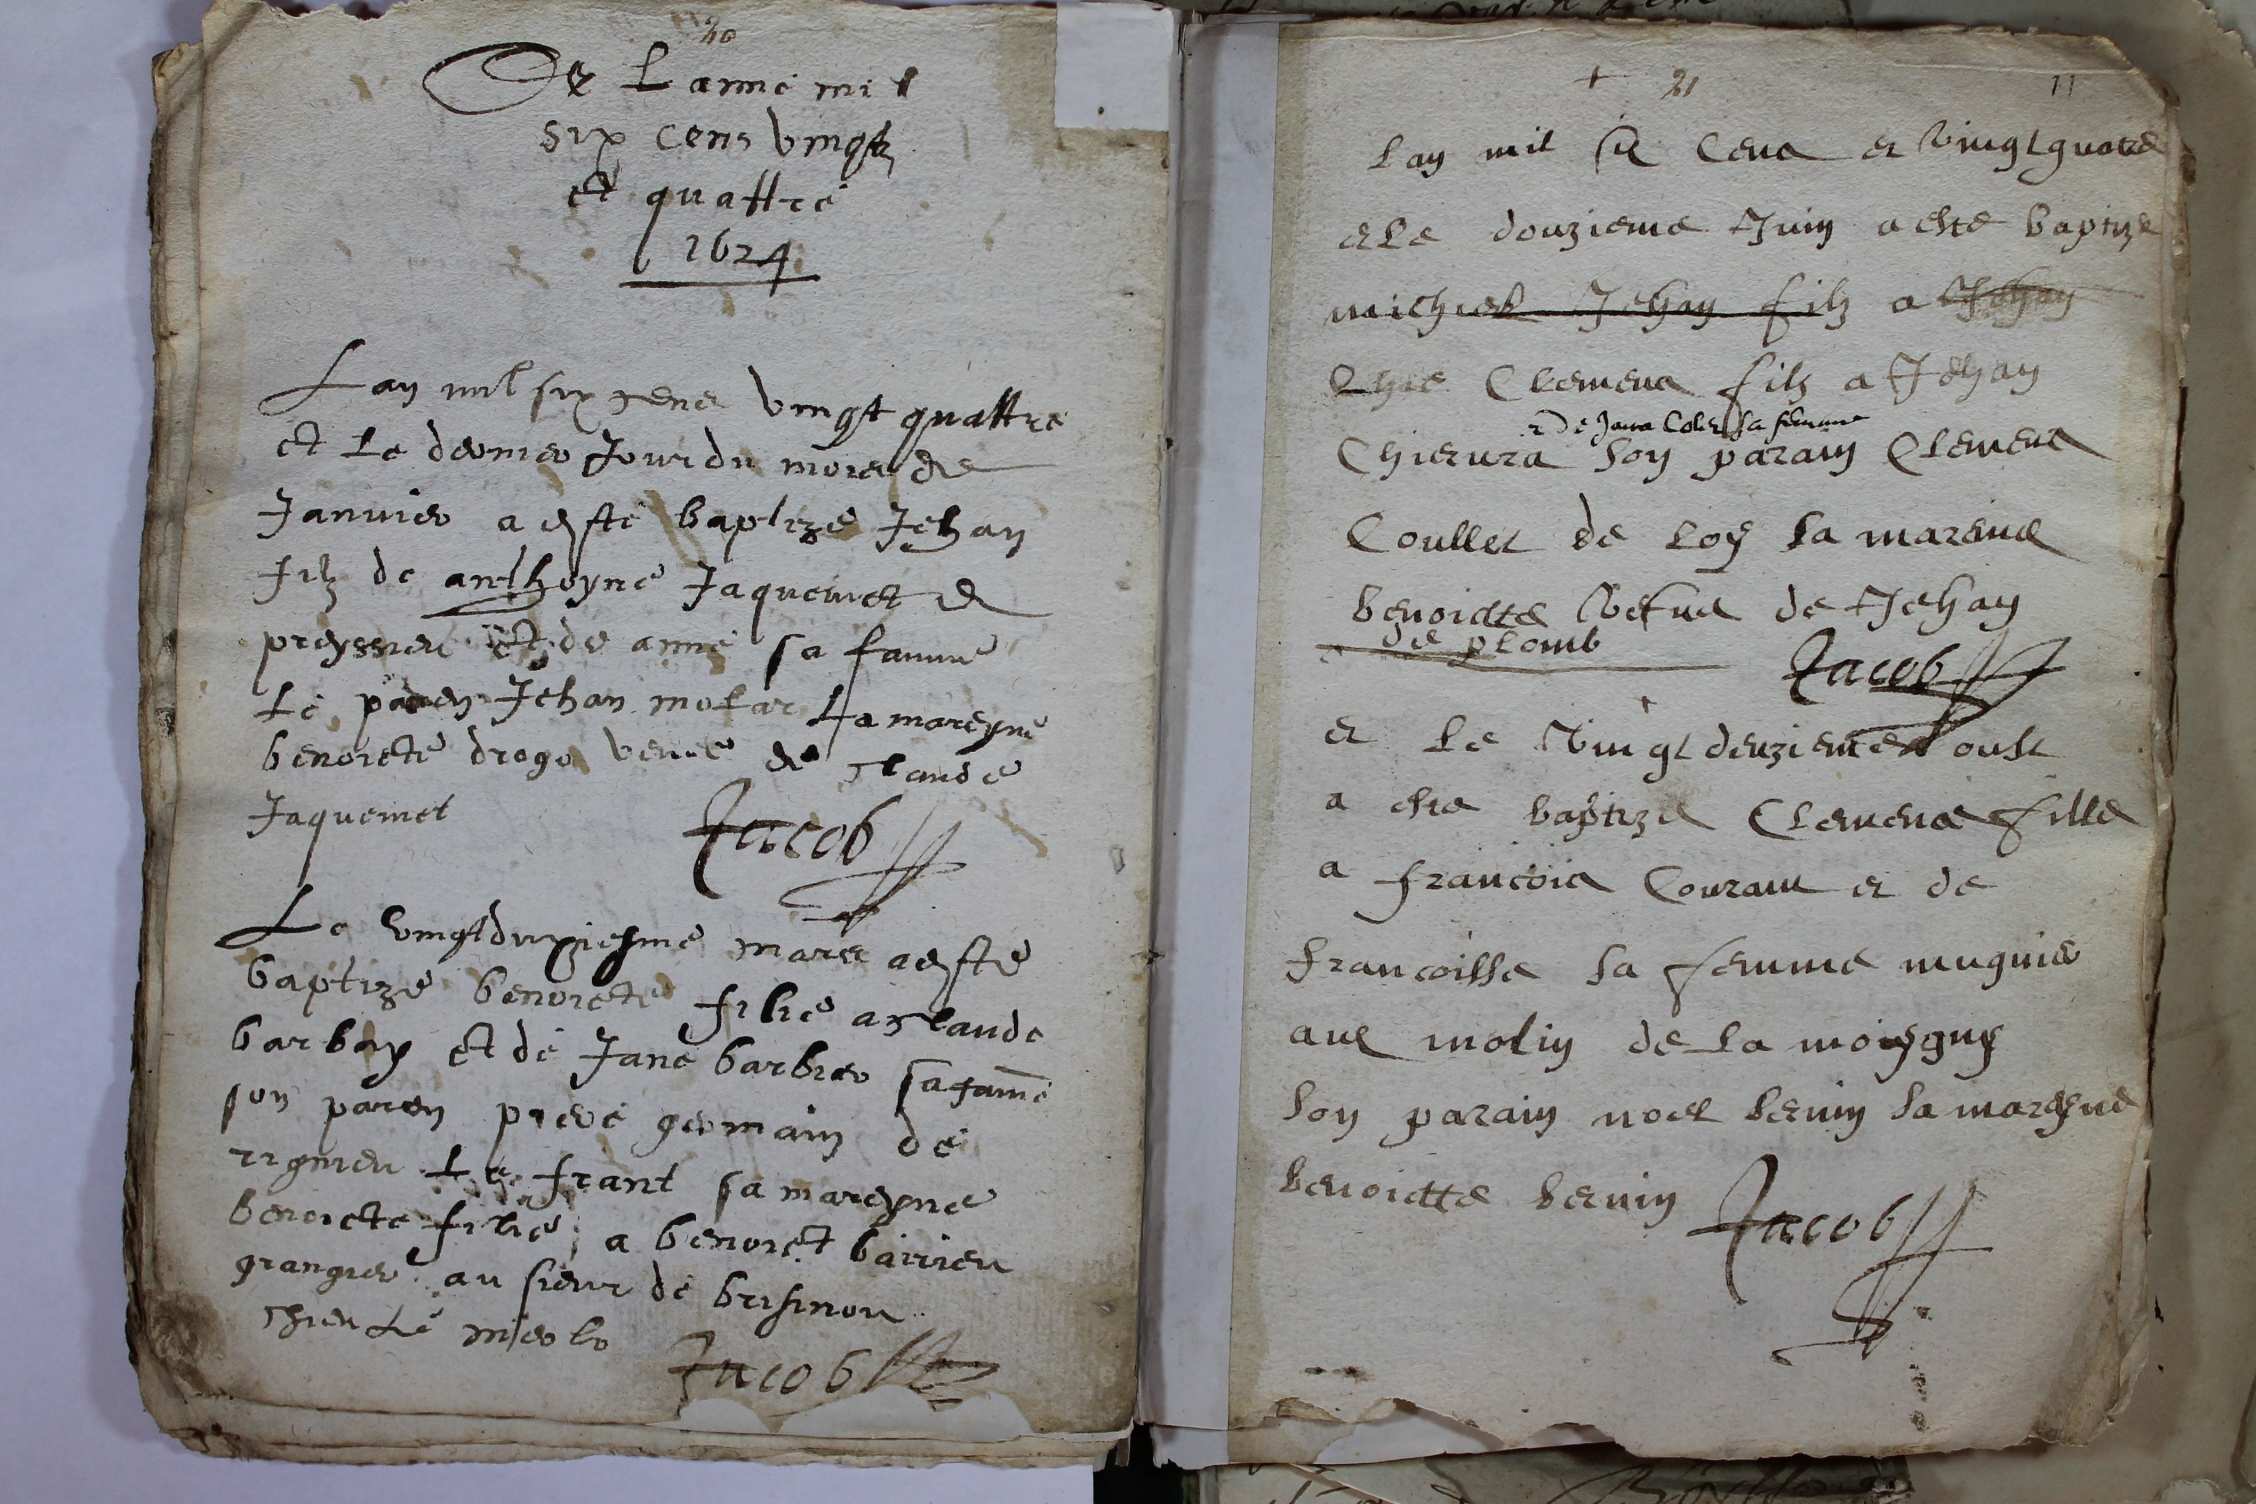 20
De Lanne mil
six cens vingtz
et quattre
1624
Lan mil six cens vingt quattre
et le dernier Jour du mois de
Janvier a esté baptizé Jehan
filz de anthoyne Jaquemet de
preyssieu et de anne sa famme
Le paren Jehan molar La mareyne
benoiete droge veuve de claude
Jaquemet
Jacob
Le vingtduxiesme mars a esté
baptizé benoiete filie a claude
barbay et de Jane barbier sa famē
son paren piere germain de
rignieu le frant sa mareyne
benoiete filie a benoict bairieu
grangier au sieur de brisinou
Jacob
21
11
Lan mil six Cens et vingt quatre
et le douzieme Juin a este baptize
michiel Jehan filz a Jehan
Clemens filz a Jehan
et de Jana Colet sa femme
Chierura son parain Clemens
Coullet de loy sa mareine
benoicte vefve de Jehan
de plomb
Jacob
et le vingt deuzieme oust
a este baptize Clemense fille
a francois Courant et de
francoisse sa femme mugnier
aux molin de la
son parain noel bernin sa mareyne
benoictte bernin
Jacob